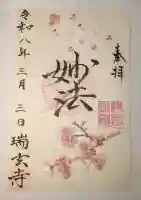 奉拝
妙法
令和八年三月三日
瑞玄寺